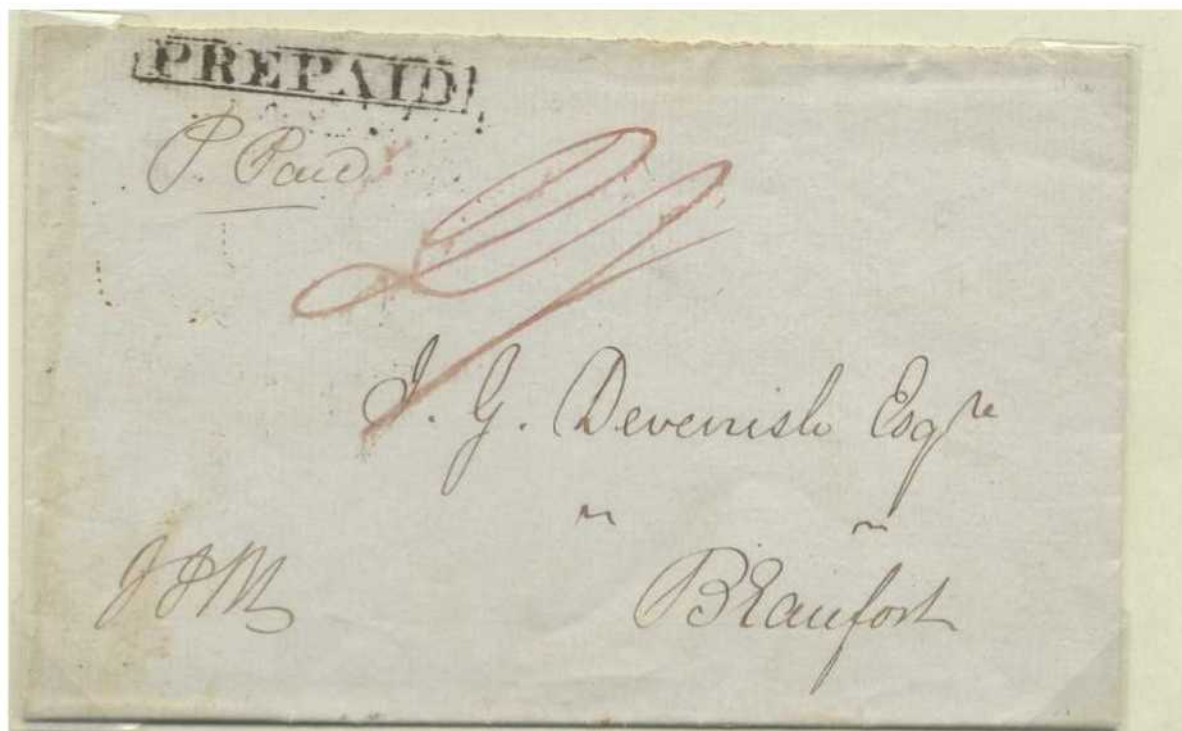 PREPAID
P. Paid
J. G. Devenish Esqre
Beaufort